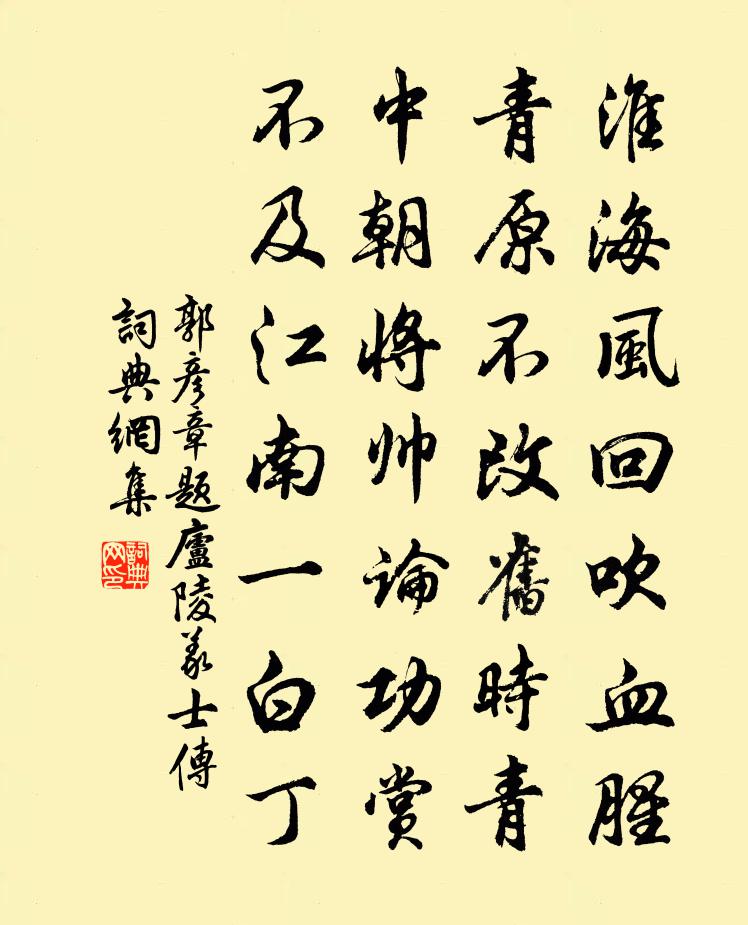 淮海風回吹血腥
青原不改舊時青
中朝將帅論功賞
不及江南一白丁
郭彥章題廬陵義士傳
詞典網集
詞典網印